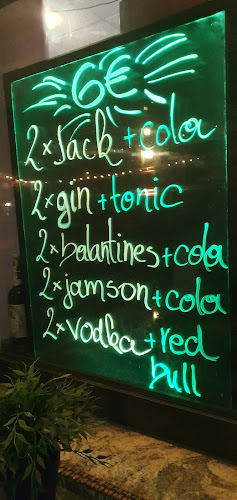 6€
2x Jack + cola
2x gin + tonic
2x balantines + cola
2x jamson + cola
2x vodka + red
bull